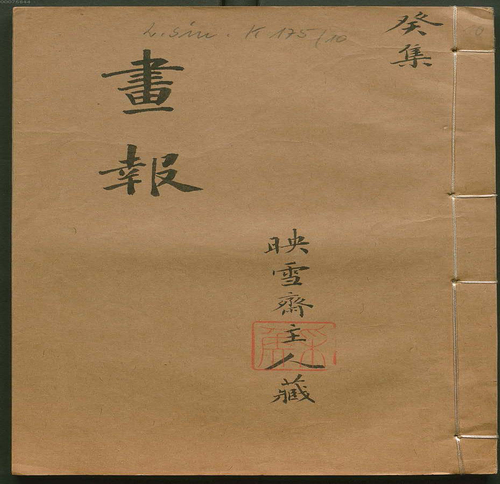 L. sin. K 175/10
癸集
畫報
映雪齋主人藏